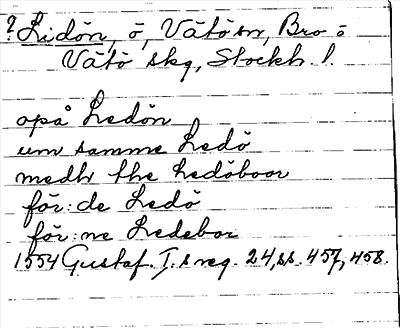 ? Lidön, ö, Vätö sn, Bro o
Vätö skg, Stockh. l.
opå Ledön
um samme Ledö
medh the Ledöboor
för: de Ledö
för: ne Ledebor
1554 Gustaf. I.s reg. 24, ss. 457, 458.